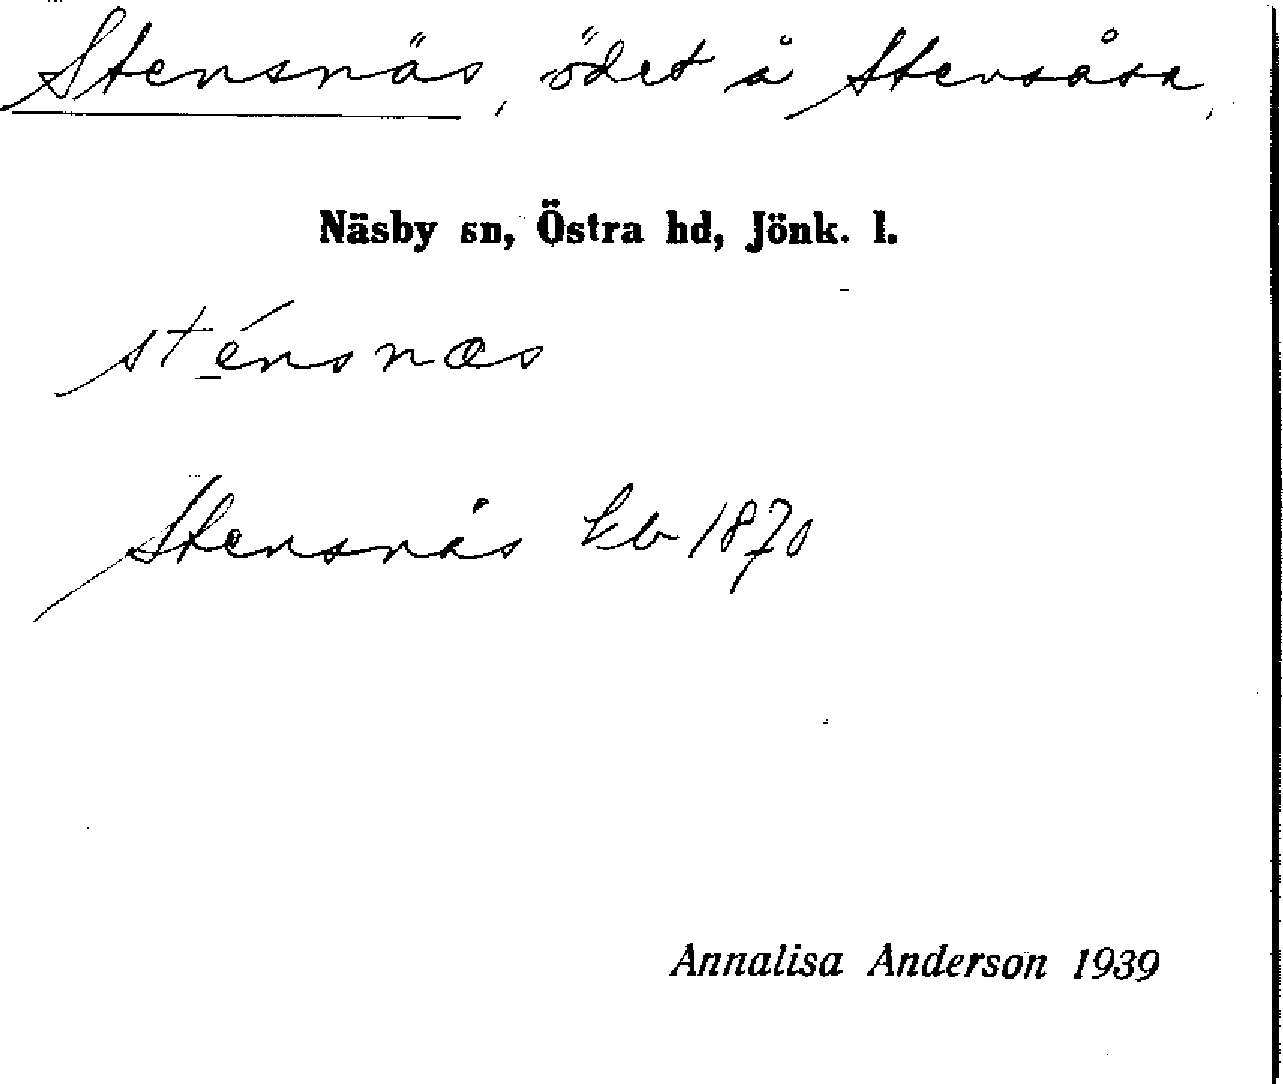 Stensnäs, ödet å Stensåsa,
Näsby sn, Östra hd, Jönk. l.
sténsnæs
Stensnäs kb 1870
Annalisa Anderson 1939